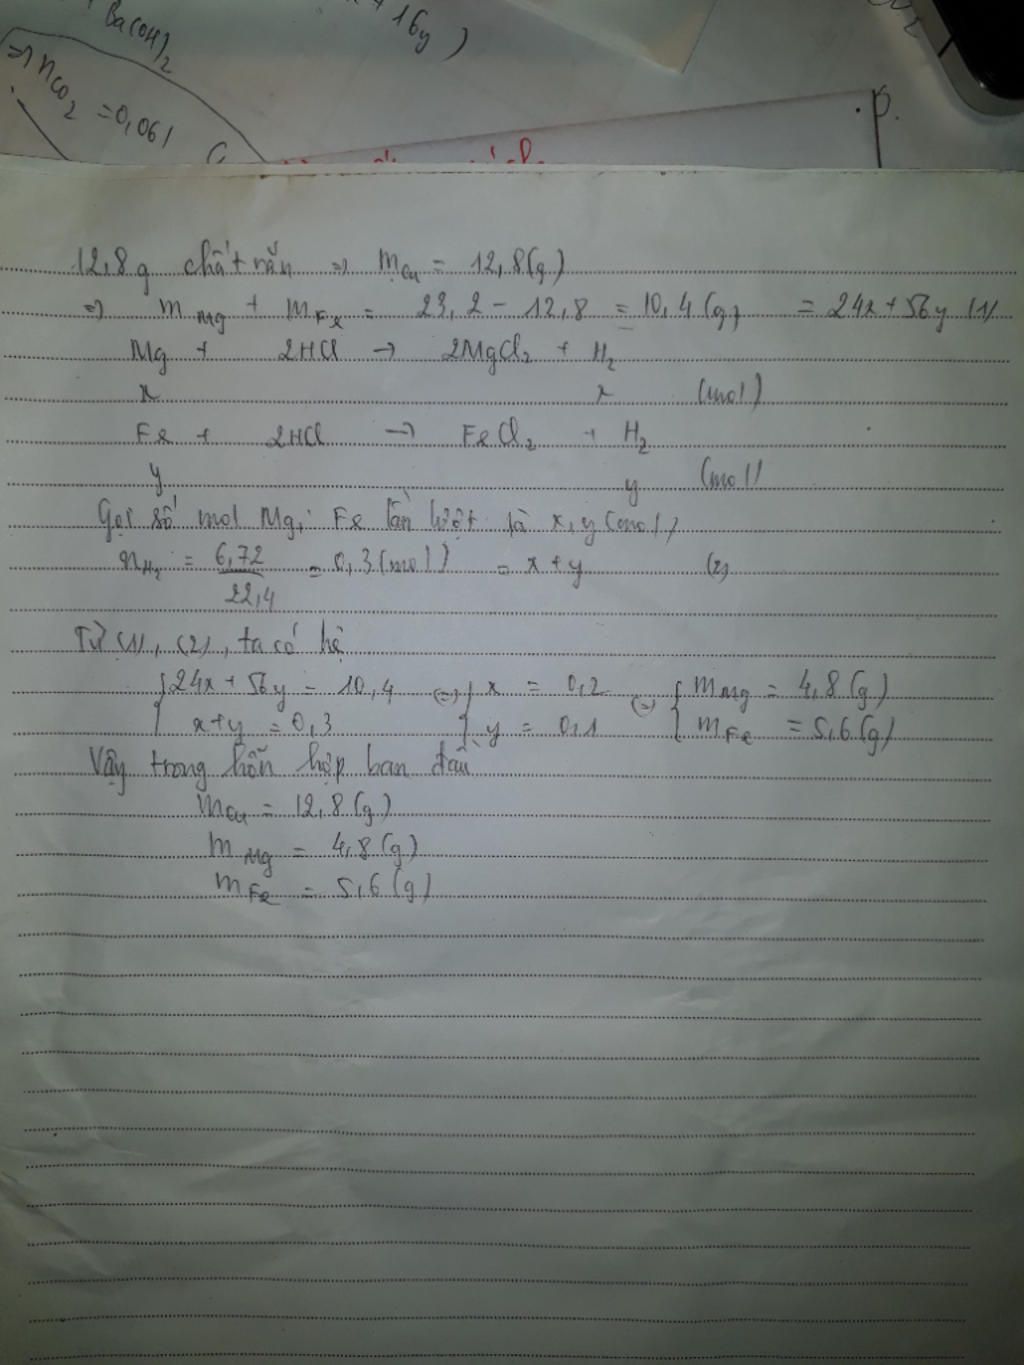 Ba(OH)2
+ 16y )
=> nCO2 = 0,061
P.
12,8g chất rắn => mCu = 12,8(g)
=> mMg + mFe = 23,2 - 12,8 = 10,4(g) = 24x + 56y (1)
Mg + 2HCl -> 2MgCl2 + H2
x x (mol)
Fe + 2HCl -> FeCl2 + H2
y y (mol)
Gọi số mol Mg, Fe lần lượt là x,y (mol)
nH2 = 6,72 / 22,4 = 0,3(mol) = x + y (2)
Từ (1), (2), ta có hệ
{24x + 56y = 10,4 (=) { x = 0,2 (=) { mMg = 4,8(g)
x+y = 0,3 y = 0,1 mFe = 5,6(g)
Vậy trong hỗn hợp ban đầu
mCu = 12,8(g)
mMg = 4,8(g)
mFe = 5,6(g)